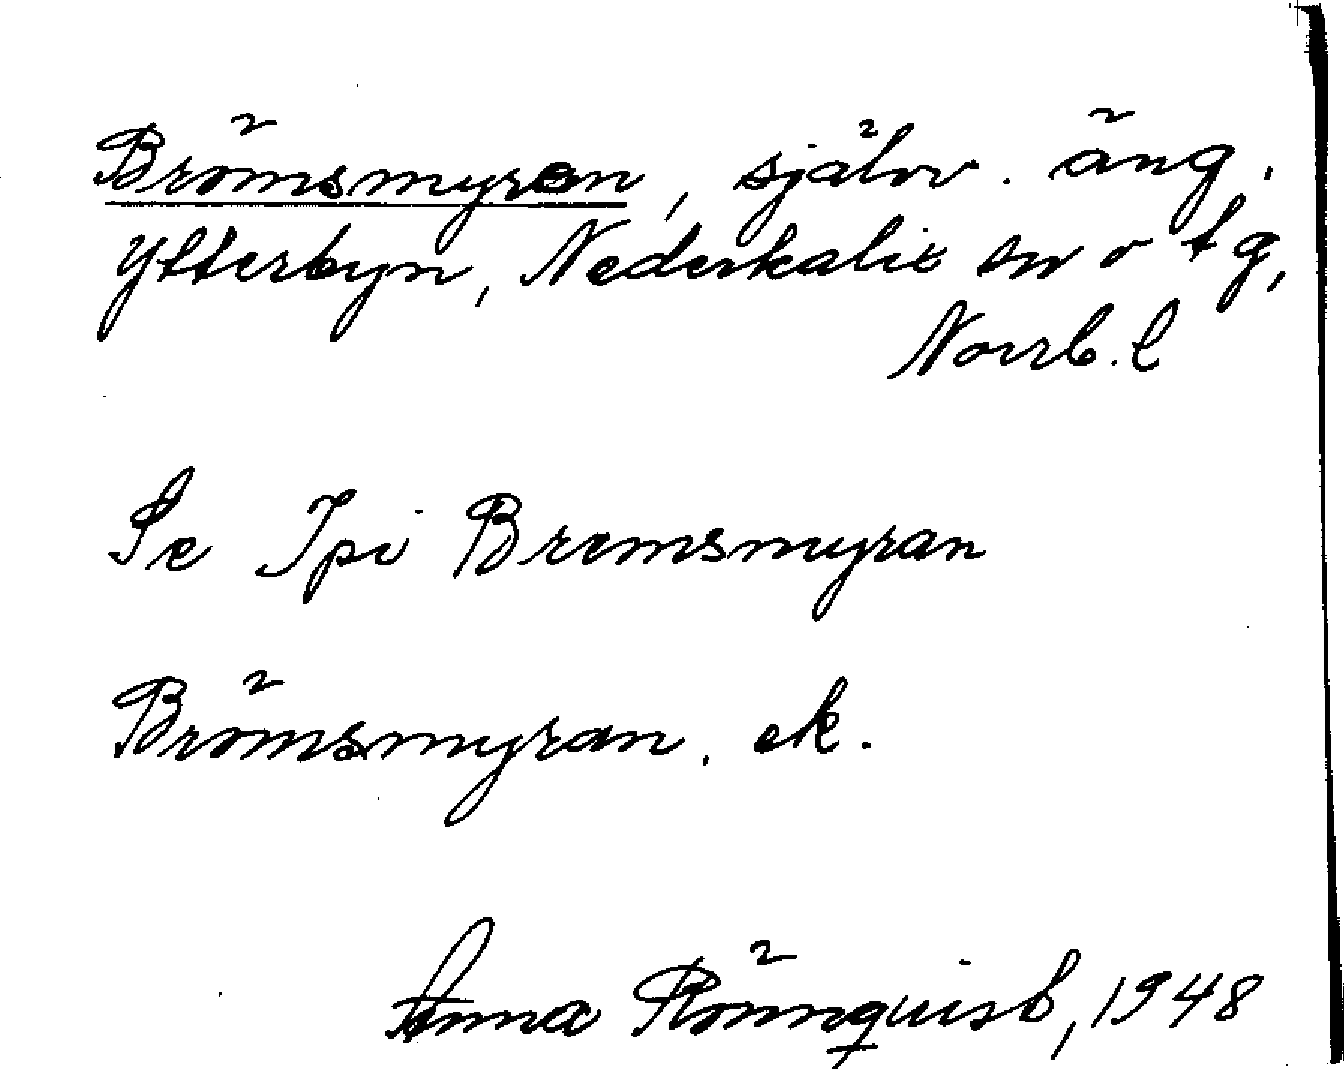 Brömsmyran, självv. äng.
Ytterbyn, Nederkalix sn o tg,
Norrb. l
Se Ipi Bremsmyran
Brömsmyran. ek.
Anna Rönnquist, 1948